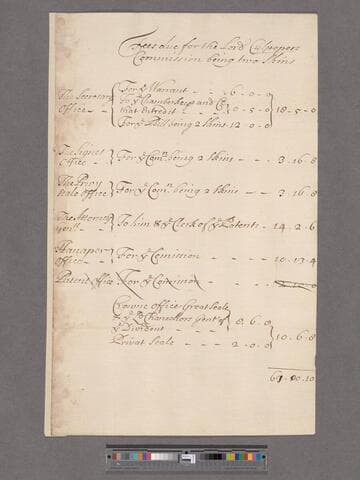 Fees due for the Lord Culpepers
Commission being two skins
The Secretary Office
For ye Warrant - - 6 - 0 - 0
To ye Chamberkeeper and
0 - 5 - 0
For ye Bill being 2 skins 12 - 0 - 0
18 - 5 - 0
The Signet Office - For ye Comn. being 2 skins - - - 3 . 16 . 8
The Privy Seale Office For ye Comn. being 2 skins - - - 3 . 16 . 8
The Attorney Genll. - To him & ye Clerk of ye Patents - 14 . 2 . 6
Hanaper Office - For ye Comission - - - 10 . 13 . 4
Patent Office For ye Comission
Crowne office Great Seale
& ye Ld Chancellors Gent of
ye Divident - - - - 8 . 6 . 0
Privat Seale - - - 2 - 0 - 0
10 . 6 . 8
61 . 00 . 10